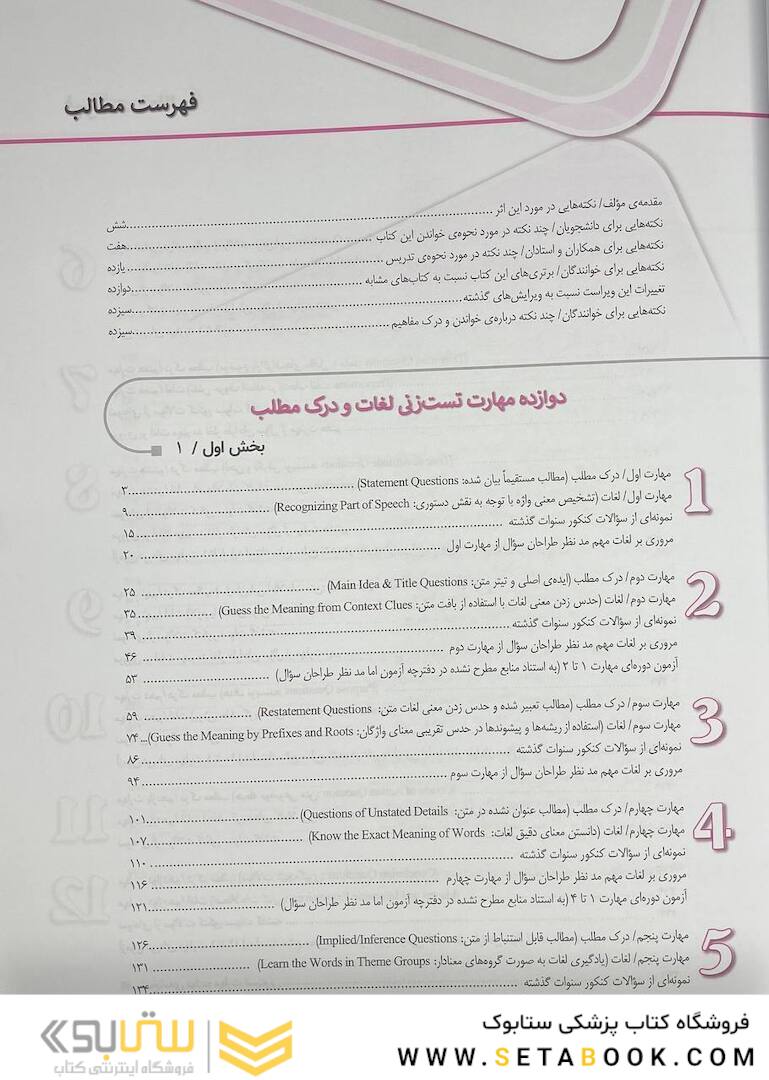 فهرست مطالب
مقدمه‌ی مؤلف/ نکته‌هایی در مورد این اثر ........ شش
نکته‌هایی برای دانشجویان/ چند نکته در مورد نحوه‌ی خواندن این کتاب ........ هفت
نکته‌هایی برای همکاران و استادان/ چند نکته در مورد نحوه‌ی تدریس ........ یازده
نکته‌هایی برای خوانندگان/ برتری‌های این کتاب نسبت به کتاب‌های مشابه ........ دوازده
تغییرات این ویراست نسبت به ویرایش‌های گذشته ........ سیزده
نکته‌هایی برای خوانندگان/ چند نکته درباره‌ی خواندن و درک مفاهیم ........ سیزده
دوازده مهارت تست‌زنی لغات و درک مطلب
بخش اول / ۱
1
مهارت اول/ درک مطلب (مطالب مستقیماً بیان شده: Statement Questions) ........ ۳
مهارت اول/ لغات (تشخیص معنی واژه با توجه به نقش دستوری: Recognizing Part of Speech) ........ ۹
نمونه‌ای از سؤالات کنکور سنوات گذشته ........ ۱۵
مروری بر لغات مهم مد نظر طراحان سؤال از مهارت اول ........ ۲۰
2
مهارت دوم/ درک مطلب (ایده‌ی اصلی و تیتر متن: Main Idea & Title Questions) ........ ۲۵
مهارت دوم/ لغات (حدس زدن معنی لغات با استفاده از بافت متن: Guess the Meaning from Context Clues) ........ ۳۵
نمونه‌ای از سؤالات کنکور سنوات گذشته ........ ۳۹
مروری بر لغات مهم مد نظر طراحان سؤال از مهارت دوم ........ ۴۶
آزمون دوره‌ای مهارت ۱ تا ۲ (به استناد منابع مطرح نشده در دفترچه آزمون اما مد نظر طراحان سؤال) ........ ۵۳
3
مهارت سوم/ درک مطلب (مطالب تعبیر شده و حدس زدن معنی لغات متن: Restatement Questions) ........ ۵۹
مهارت سوم/ لغات (استفاده از ریشه‌ها و پیشوندها در حدس تقریبی معنای واژگان: Guess the Meaning by Prefixes and Roots) ... ۷۴
نمونه‌ای از سؤالات کنکور سنوات گذشته ........ ۸۶
مروری بر لغات مهم مد نظر طراحان سؤال از مهارت سوم ........ ۹۴
4
مهارت چهارم/ درک مطلب (مطالب عنوان نشده در متن: Questions of Unstated Details) ........ ۱۰۱
مهارت چهارم/ لغات (دانستن معنای دقیق لغات: Know the Exact Meaning of Words) ........ ۱۰۷
نمونه‌ای از سؤالات کنکور سنوات گذشته ........ ۱۱۰
مروری بر لغات مهم مد نظر طراحان سؤال از مهارت چهارم ........ ۱۱۶
آزمون دوره‌ای مهارت ۱ تا ۴ (به استناد منابع مطرح نشده در دفترچه آزمون اما مد نظر طراحان سؤال) ........ ۱۲۱
5
مهارت پنجم/ درک مطلب (مطالب قابل استنباط از متن: Implied/Inference Questions) ........ ۱۲۶
مهارت پنجم/ لغات (یادگیری لغات به صورت گروه‌های معنادار: Learn the Words in Theme Groups) ........ ۱۳۱
نمونه‌ای از سؤالات کنکور سنوات گذشته ........ ۱۳۴
فروشگاه کتاب پزشکی ستابوک
WWW.SETABOOK.COM
ستابوک
فروشگاه اینترنتی کتاب